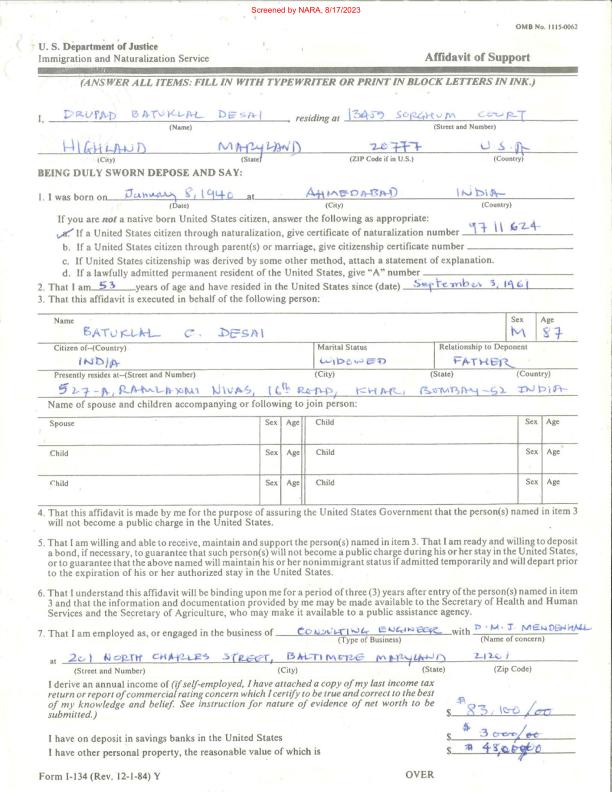 Screened by NARA, 8/17/2023
OMB No. 1115-0062
U. S. Department of Justice
Immigration and Naturalization Service
Affidavit of Support
(ANSWER ALL ITEMS: FILL IN WITH TYPEWRITER OR PRINT IN BLOCK LETTERS IN INK.)
I, DRUPAD BATUKLAL DESAI, residing at 13459 SORGHUM COURT
(Name) (Street and Number)
HIGHLAND MARYLAND 20777 U.S.A
(City) (State) (ZIP Code if in U.S.) (Country)
BEING DULY SWORN DEPOSE AND SAY:
1. I was born on January 8, 1940 at AHMEDABAD INDIA
(Date) (City) (Country)
If you are not a native born United States citizen, answer the following as appropriate:
a. If a United States citizen through naturalization, give certificate of naturalization number 9711624
b. If a United States citizen through parent(s) or marriage, give citizenship certificate number
c. If United States citizenship was derived by some other method, attach a statement of explanation.
d. If a lawfully admitted permanent resident of the United States, give "A" number
2. That I am 53 years of age and have resided in the United States since (date) September 3, 1961
3. That this affidavit is executed in behalf of the following person:
Name Sex Age
BATUKLAL C. DESAI M 87
Citizen of--(Country) Marital Status Relationship to Deponent
INDIA WIDOWED FATHER
Presently resides at--(Street and Number) (City) (State) (Country)
527-A, RAMLAXMI NIVAS, 16th ROAD, KHAR, BOMBAY-52 INDIA
Name of spouse and children accompanying or following to join person:
Spouse Sex Age Child Sex Age
Child Sex Age Child Sex Age
Child Sex Age Child Sex Age
4. That this affidavit is made by me for the purpose of assuring the United States Government that the person(s) named in item 3
will not become a public charge in the United States.
5. That I am willing and able to receive, maintain and support the person(s) named in item 3. That I am ready and willing to deposit
a bond, if necessary, to guarantee that such person(s) will not become a public charge during his or her stay in the United States,
or to guarantee that the above named will maintain his or her nonimmigrant status if admitted temporarily and will depart prior
to the expiration of his or her authorized stay in the United States.
6. That I understand this affidavit will be binding upon me for a period of three (3) years after entry of the person(s) named in item
3 and that the information and documentation provided by me may be made available to the Secretary of Health and Human
Services and the Secretary of Agriculture, who may make it available to a public assistance agency.
7. That I am employed as, or engaged in the business of CONSULTING ENGINEER with D.M.J MENDENHALL
(Type of Business) (Name of concern)
at 201 NORTH CHARLES STREET, BALTIMORE MARYLAND 21201
(Street and Number) (City) (State) (Zip Code)
I derive an annual income of (if self-employed, I have attached a copy of my last income tax
return or report of commercial rating concern which I certify to be true and correct to the best
of my knowledge and belief. See instruction for nature of evidence of net worth to be
submitted.) $ $ 83,100/00
I have on deposit in savings banks in the United States $ $ 3000/00
I have other personal property, the reasonable value of which is $ $
Form I-134 (Rev. 12-1-84) Y OVER